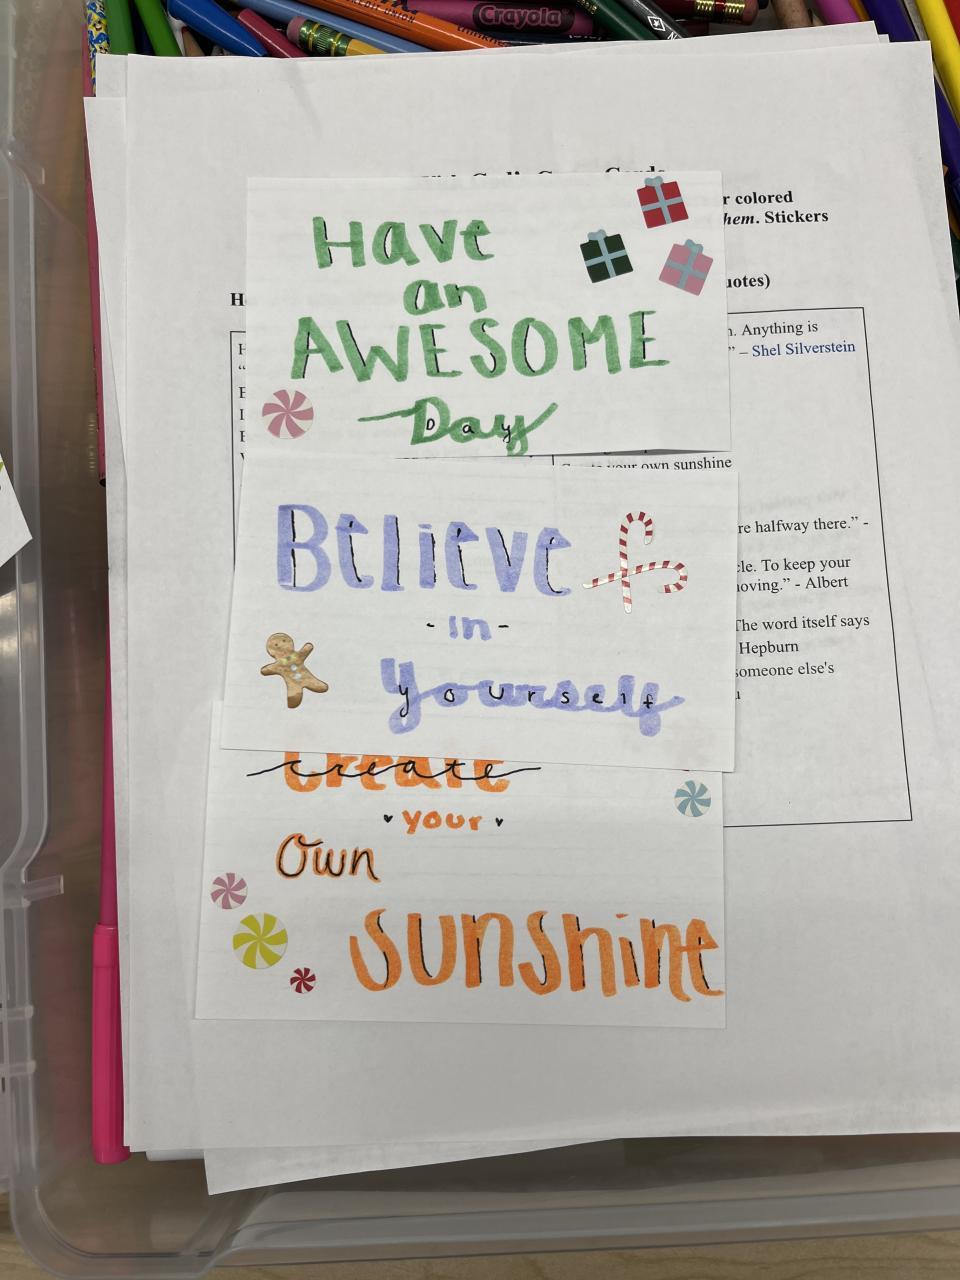 Crayola
r colored
hem. Stickers
uotes)
Have
an
AWESOME
Day
n. Anything is
” – Shel Silverstein
your own sunshine
Believe
- in -
yourself
re halfway there.” -
cle. To keep your
oving.” - Albert
The word itself says
Hepburn
someone else's
create
your
Own
sunshine